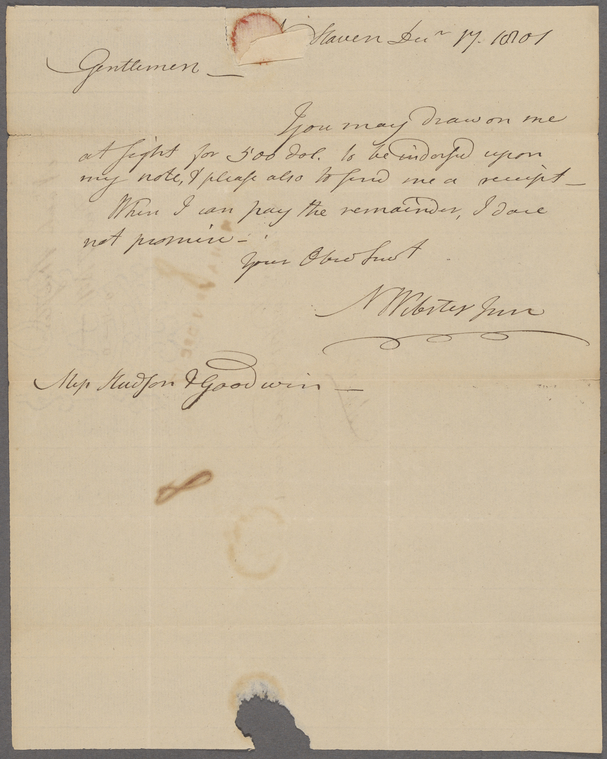 N Haven Decr 17. 1801
Gentlemen —
You may draw on me
at sight for 500 dol. to be indorsed upon
my note, & please also to send me a receipt —
When I can pay the remainder, I dare
not promise —
Your Obed Servt
N Webster Junr
Messrs Hudson & Goodwin —